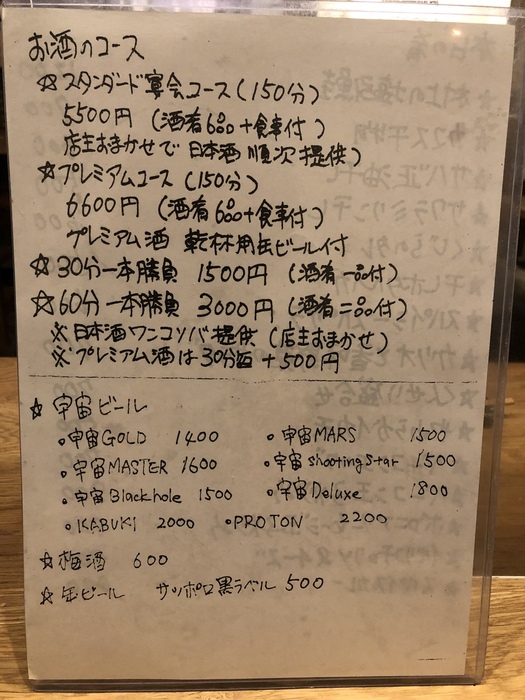 お酒のコース
☆スタンダード宴会コース(150分)
5500円 (酒肴6品+食事付)
店主おまかせで日本酒順次提供)
☆プレミアムコース(150分)
6600円 (酒肴6品+食事付)
プレミアム酒 乾杯用缶ビール付
☆30分一本勝負 1500円 (酒肴一品付)
☆60分一本勝負 3000円 (酒肴二品付)
※日本酒ワンコソバ提供(店主おまかせ)
※プレミアム酒は30分毎+500円
☆宇宙ビール
・宇宙GOLD 1400 ・宇宙MARS 1500
・宇宙MASTER 1600 ・宇宙shootingstar 1500
・宇宙Blackhole 1500 ・宇宙Deluxe 1800
・KABUKI 2000 ・PROTON 2200
☆梅酒 600
☆缶ビール サッポロ黒ラベル 500